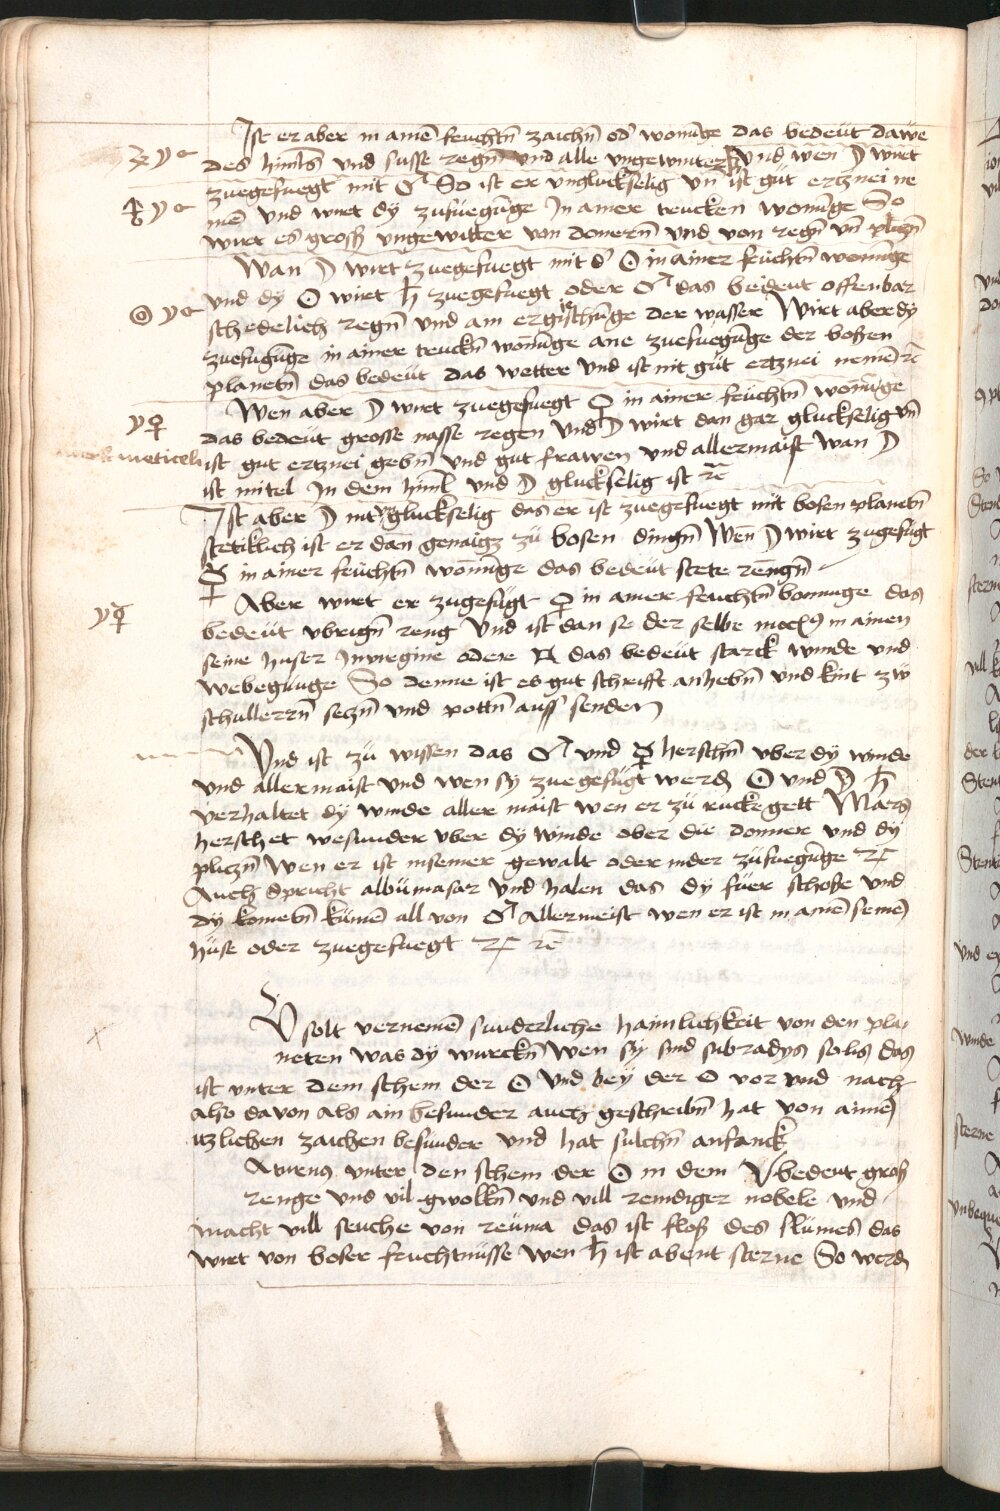 Ist er aber in aine feuchtn zaichn od wonu̅ge das bedeüt dawe
des himls und susse regn und alle ungewinter und wen ☽ wirt
zuegefuegt mit ♂ So ist er unglückselig un̅ ist güt ertznei ne
me̅ und wirt dy zufuegu̅ge In ainer trucken wonu̅ge So
wirt es grosß ungewitter von donern̅ und von regn̅ un̅ plitzn̅
Wan ☽ wirt zuegefuegt mit d' ☉ in ainer feüchtn̅ wonu̅ge
und dy ☉ wirt ♄ zuegefuegt oder ♂ das bedeut offenbar
schedelich regn̅ und am ergisschu̅ge der wasser Wirt aber dy
zuefugu̅ge in ainer truckn̅ wonu̅ge ane zuefuegu̅ge der boßen
planetn̅ das bedeüt das wetter und ist nit güt ertznei neme̅ ꝛc̅
Wen aber ☽ wirt zuegefuegt ♀ in ainer feüchtn̅ wonu̅ge
☽ ♀
das bedeüt grosse nasse regen und ☽ wirt dan gar gluckselig un̅
ist gut ertznei gebn̅ und gut frawen und allermaist wan ☽
ist mitel In dem himl̅ und ☽ gluckselig ist ꝛc̅
Ist aber ☽ nit gluckselig das er ist zuegefuegt mit bosen planetn̅
stetiklich ist er dan̅ genaigz zü bosen dingn̅ Wen̅ ☽ wirt zugefügt
☿ in ainer feüchtn̅ wonu̅ge das bedeüt stete rengn̅
☽ ☿
Aber wirt er zugefügt ♀ in ainer feuchtn̅ bonnuge das
bedeüt ubrign̅ reng Und ist dan se der selbe in ainen
seine huser In virgine odere ♊ das bedeüt starck winde und
webegunge So denne ist es gut schrifft anhebn̅ und kint zw
schullerrn̅ seczn̅ und pottn̅ auss senden
Und ist zü wissen das ♂ und ☿ herschn̅ uber dy winde
und allermaist und wen sy zuegefügt werd ☉ und ☽ ♄
verhaltet dy winde aller maist wen er zü rucke gett Mars
herschet wesunder uber dy winde ober die donner und dy
pliczn̅ Wen er ist in seiner gewalt oder in der züfuegu̅ge ꝛc
Auch spricht albümasar und halen das dy füer schoße und
dy kometn̅ küme̅ all von ♂ Allermeist wen er ist in aine̅ seine̅
hüse oder zuegefuegt ꝛc ꝛc̅
D solt verneme̅ sunderliche haimlichkeit von den pla
neten was dy wurckn̅ Wen sy sind sub radys solis das
ist unter dem schein der ☉ Und bey der ☉ vor und nach
also davon als ain besunder auch geschribn̅ hat von aine̅
itzlichen zaichen besunder und hat sulchn̅ anfanck
Aturnus unter den schein der ☉ in dem ♈ bedeut groß
renge und vil gwolkn̅ und vill reindiger nebele und
macht vill seuche von reüma das ist floß des flümes das
wirt von boser fruchtnüsse wen ♄ ist abent sterne So werd